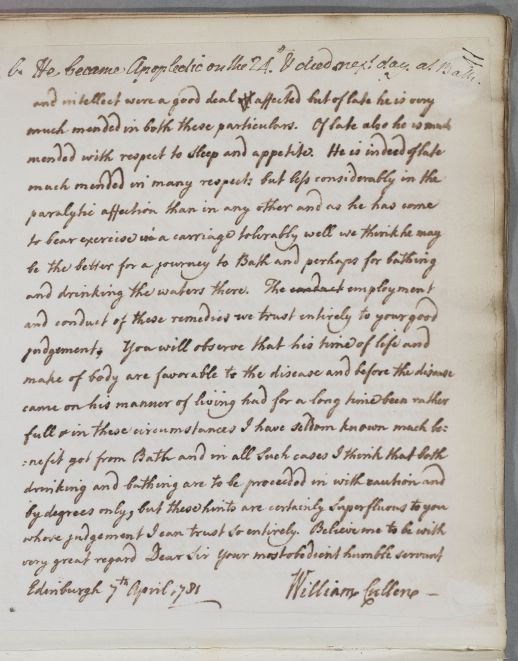 b. He became Apoplectic on the 24th & died next day at Bath.
and intellect were a good deal affected but of late he is very
much mended in both these particulars. Of late also he is much
mended with respect to sleep and appetite. He is indeed of late
much mended in many respects but less considerably in the
paralytic affection than in any other and as he has come
to bear exercise in a carriage tolerably well we think he may
be the better for a journey to Bath and perhaps for bathing
and drinking the waters there. The conduct employment
and conduct of these remedies we trust entirely to your good
judgement. You will observe that his time of life and
make of body are favorable to the disease and before the disease
came on his manner of living had for a long time been rather
full & in these circumstances I have seldom known much be:
:nefit got from Bath and in all such cases I think that both
drinking and bathing are to be proceeded in with caution and
by degrees only, but these hints are certainly superfluous to you
whose judgement I can trust so entirely. Believe me to be with
very great regard Dear Sir your most obedient humble servant
Edinburgh 7th April 1781 William Cullen